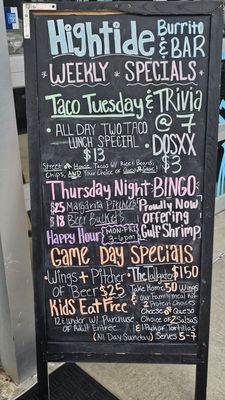 Hightide Burrito
& BAR
WEEKLY SPECIALS
Taco Tuesday & Trivia
@ 7
• ALL DAY TWO TACO
LUNCH SPECIAL •
$13
DOSXX
$3
Street House Tacos w/ Rice & Beans,
Chips, AND Your Choice of
Thursday Night BINGO
$25 Margarita Pitchers
$18 Beer Buckets
Proudly Now
offering
Gulf Shrimp
Happy Hour MON-FRI
3-6pm
GAME DAY SPECIALS
• Wings + Pitcher
of Beer $25
• The Tailgater $150
Take Home 50 Wings
& our family meal kit
2 Protein Choices
Cheese & Queso
Choice of 2 Salsas
& 1 Pack of Tortillas
Serves 5-7
Kids Eat Free
12 & under w/ Purchase
of Adult Entree
(All Day Sunday)